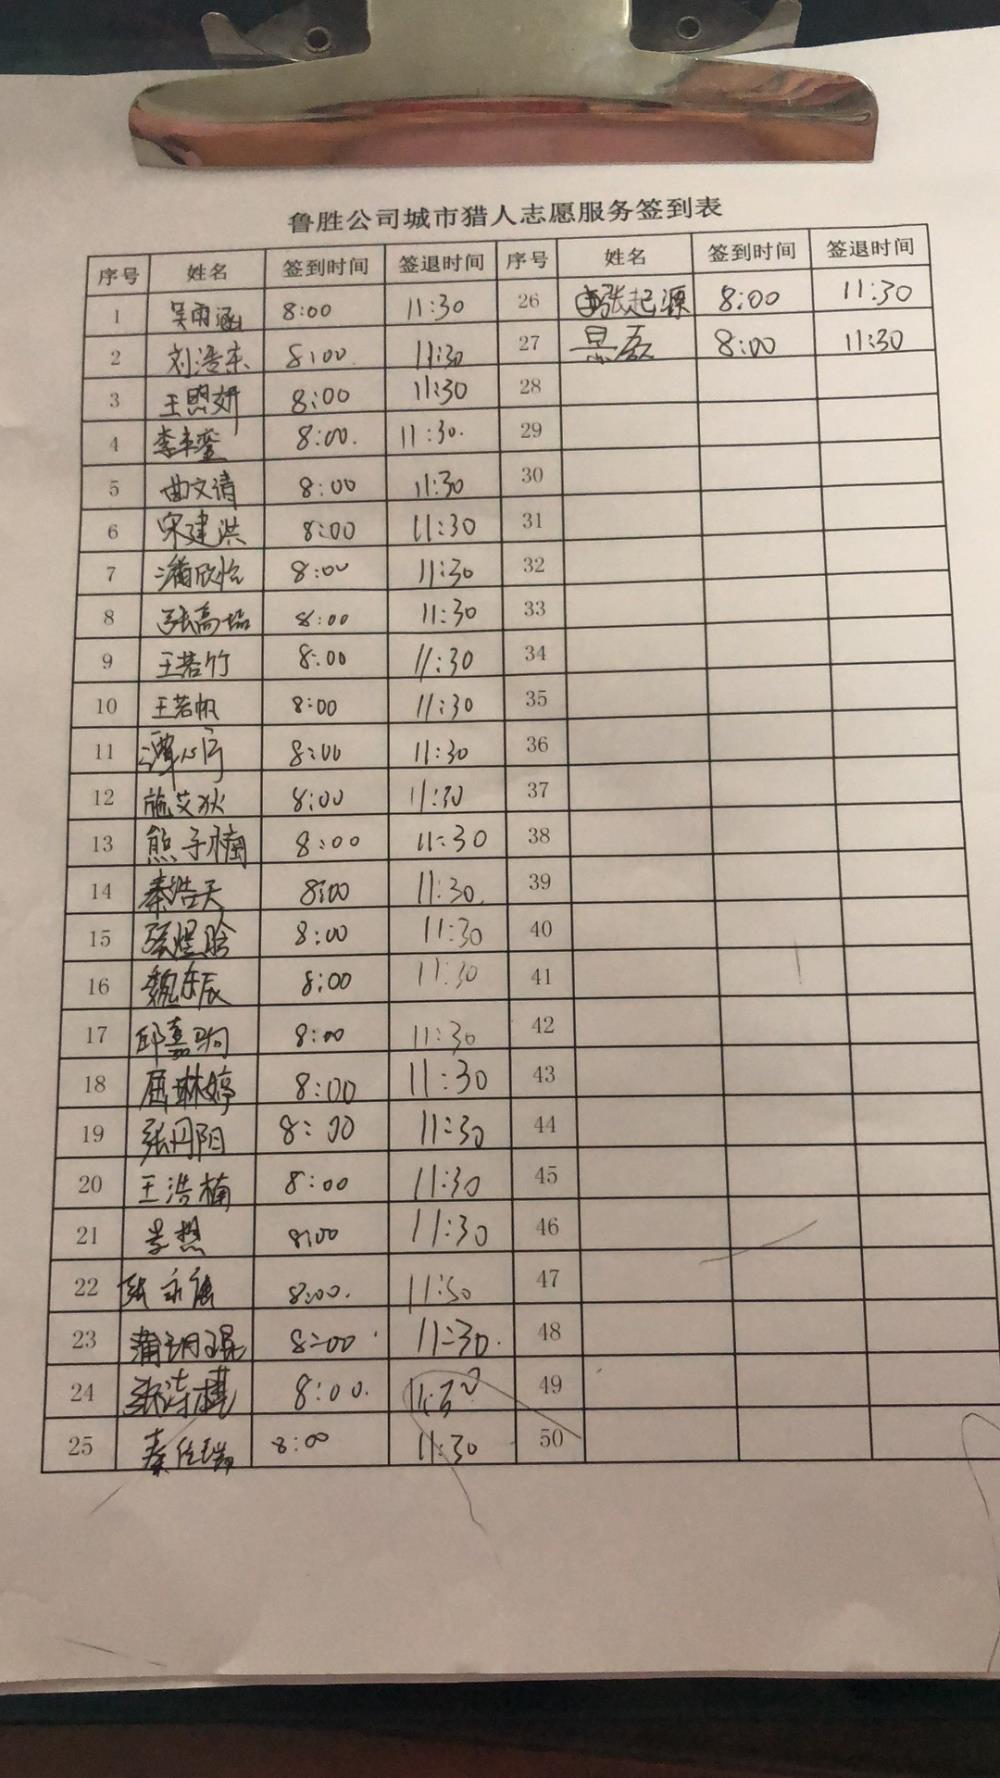 鲁胜公司城市猎人志愿服务签到表
序号 姓名 签到时间 签退时间 序号 姓名 签到时间 签退时间
1 吴雨涵 8:00 11:30 26 张起源 8:00 11:30
2 刘浩东 8:00 11:30 27 景磊 8:00 11:30
3 王煦妍 8:00 11:30 28
4 李幸銮 8:00. 11:30. 29
5 曲文靖 8:00 11:30 30
6 宋建洪 8:00 11:30 31
7 潘欣怡 8:00 11:30 32
8 张高 8:00 11:30 33
9 王若竹 8:00 11:30 34
10 王若帆 8:00 11:30 35
11 谭心 8:00 11:30 36
12 施艾狄 8:00 11:30 37
13 熊子楠 8:00 11:30 38
14 秦浩天 8:00 11:30. 39
15 张煜晗 8:00 11:30 40
16 魏东辰 8:00 11:30 41
17 邱嘉驹 8:00 11:30 42
18 屈琳婷 8:00 11:30 43
19 张丹阳 8:00 11:30 44
20 王浩楠 8:00 11:30 45
21 8:00 11:30 46
22 张永 8:00. 11:30 47
23 蒲玥琨 8:00 11:30. 48
24 张涛 8:00. 11:30 49
25 秦任瑞 8:00 11:30 50